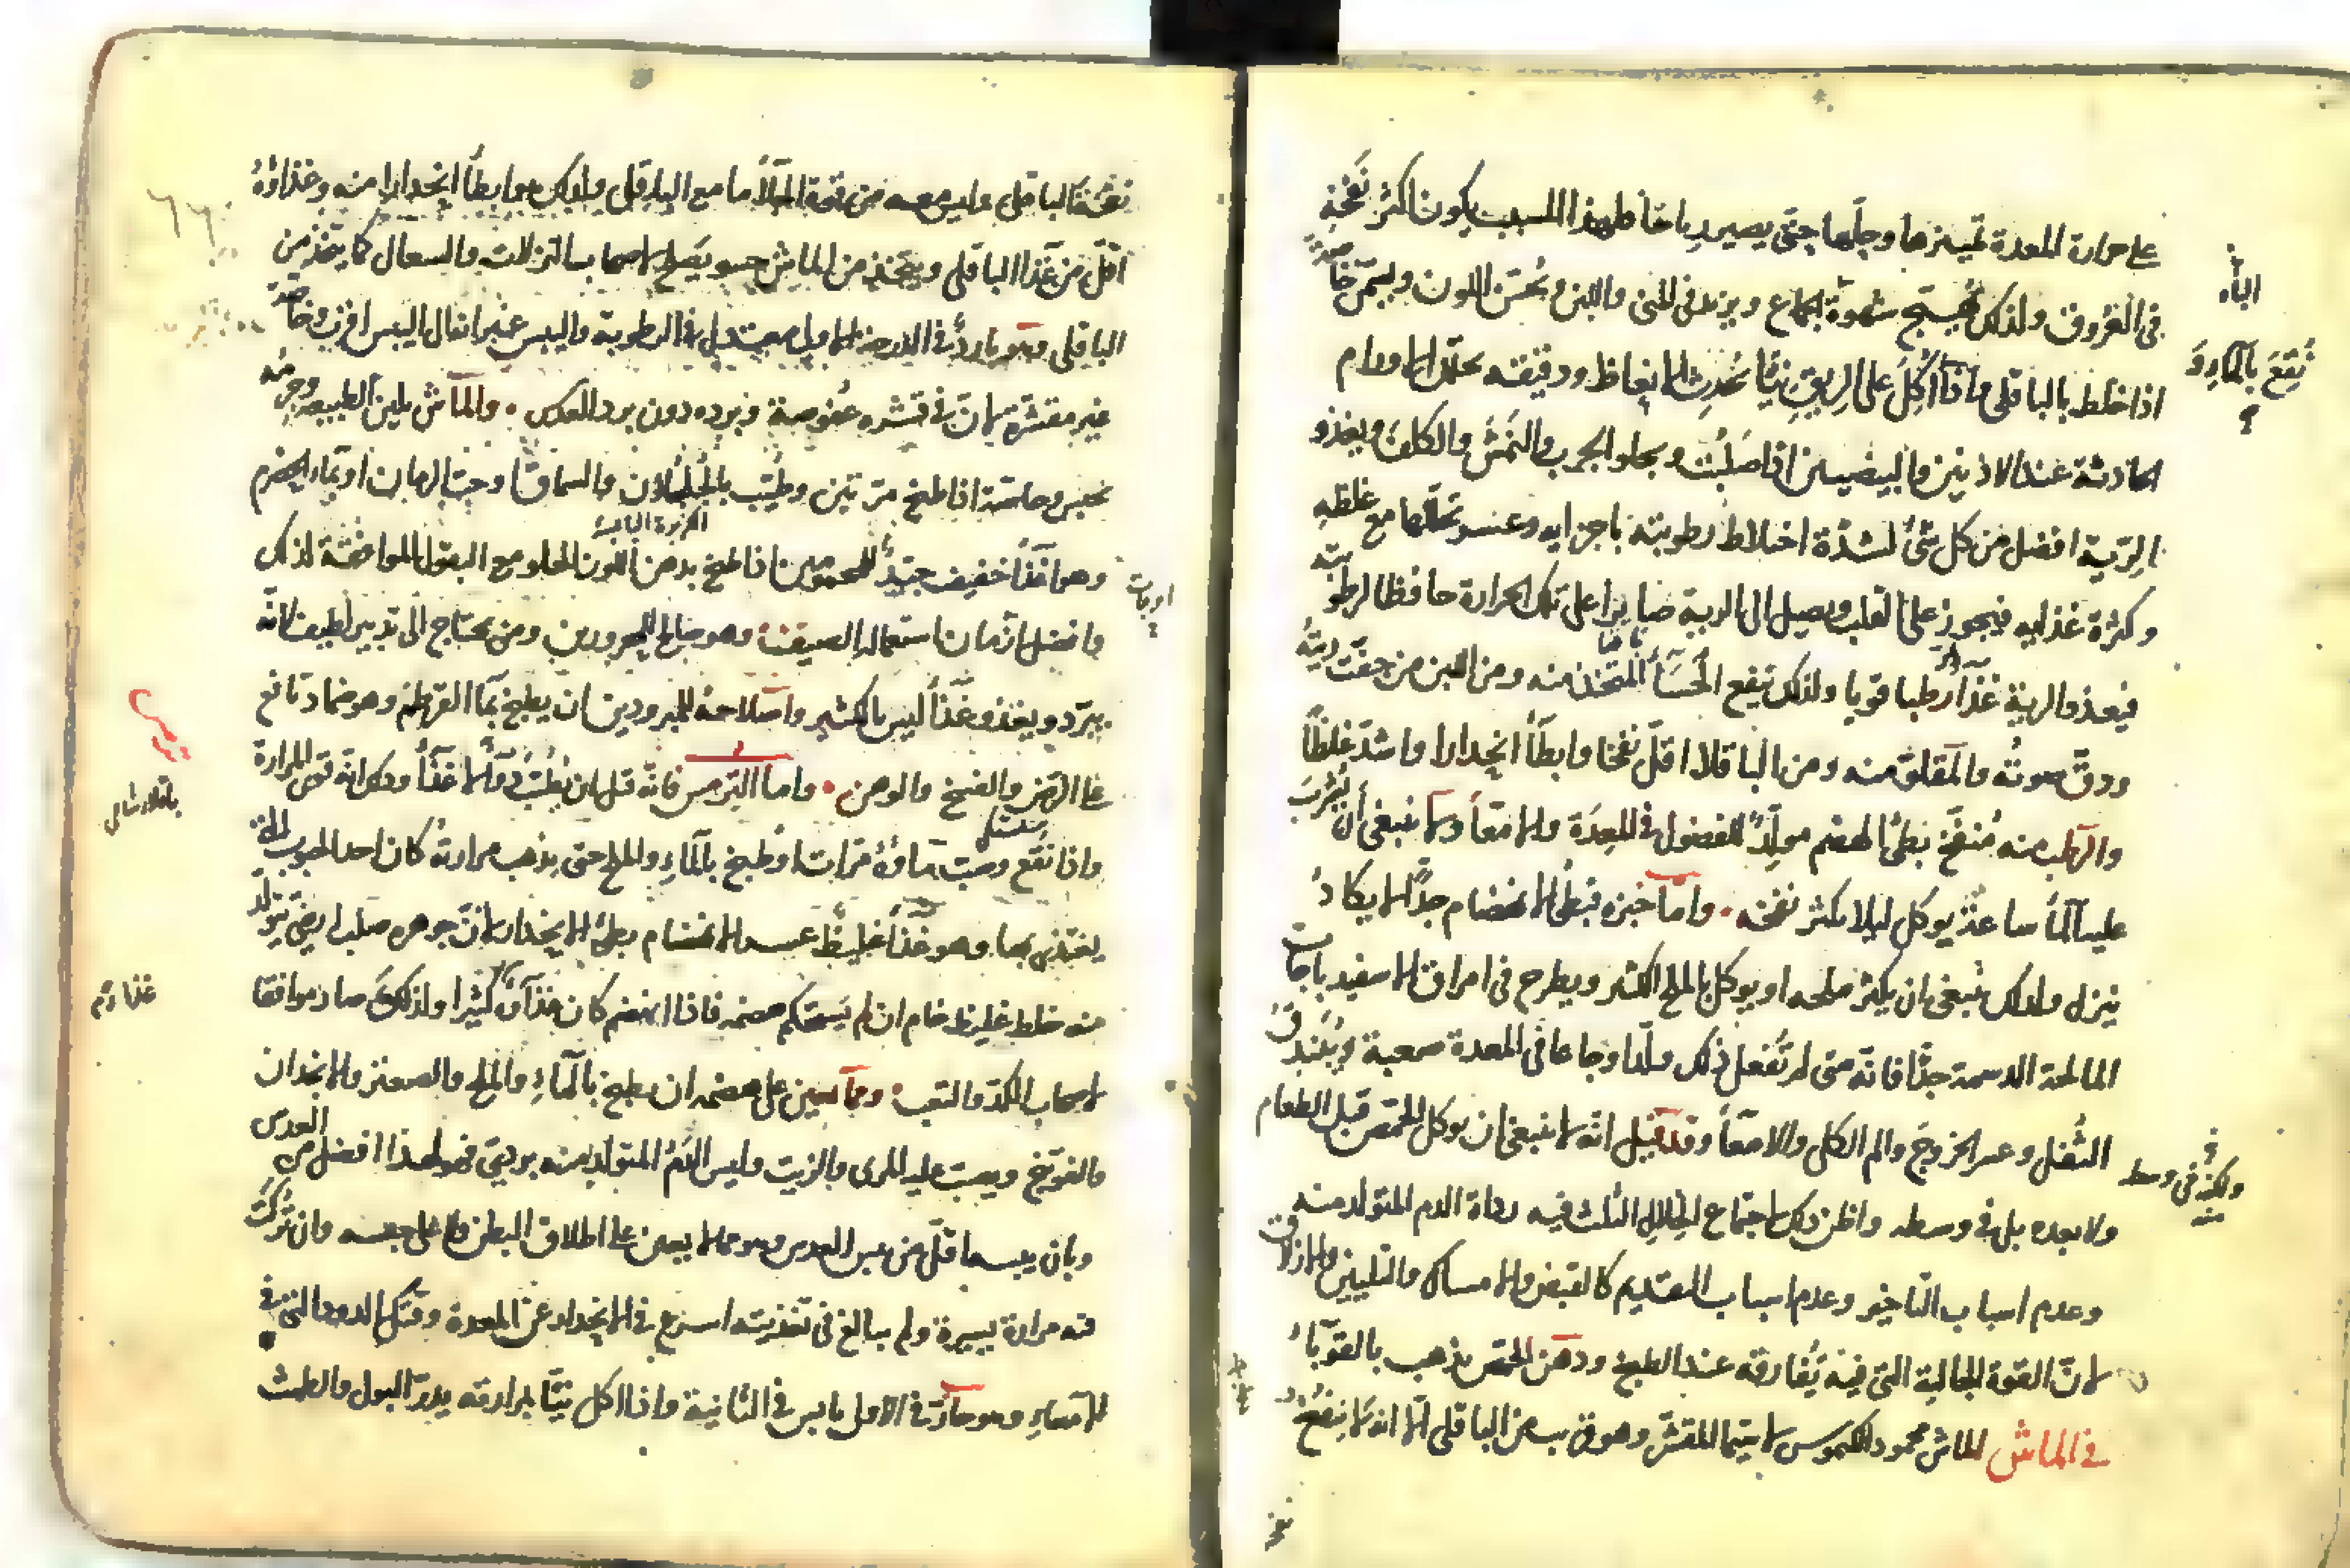 على حرارة المعدة تميزها وحلها حتى يصير رياحا فلهذا السبب يكون اكثر نفخه
في العروق ولذلك يهيج شهوة الجماع ويزيد في المني واللبن ويحسن اللون ويسمن خاصة
اذا خلط بالباقلى واذا اكل على الريق نيّا يحدث الانعاظ ودقيقه يحلل الاورام
الحادثة عند الاذنين والبيضتين اذا صلبت ويجلو الجرب والنمش والكلف ويغذو
الرية افضل من كل شئ لشدة اختلاط رطوبته باجزايه وعسر تحللها مع غلظه
وكثرة غذايه فيجوز على القلب ويصل الى الرية صابرا على تلك الحرارة حافظا لرطوبته
فيغذو الرية غذاء رطبا قويا ولذلك ينفع الحسا المتخذ منه ومن اللبن من جفت ريته
ودق صوته والمقلو منه ومن الباقلا اقل نفخا وابطأ انحدارا واشد غلظا
والرطب منه منفخ بطئ الهضم مولد للفضول في المعدة والامعا ولا ينبغي أن يشرب
عليه الما ساعة يوكل ليلا يكثر نفخه واما خبزه فبطئ الانهضام جدا لا يكاد
ينزل ولذلك ينبغي ان يكثر ملحه او يوكل بالملح الكثير ويطرح في امراق الاسفيدباجات
المالحة الدسمة جدا فانه متى لم تفعل ذلك ولد اوجاعا في المعدة صعبة ويبندق
الثفل وعسر الخروج والم الكلى والامعا وقد قيل انه لا ينبغي ان يوكل الحمص قبل الطعام
ولا بعده بل في وسطه واظن ذلك لاجتماع الخلال الثلث فيه رداة الدم المتولد منه
وعدم اسباب التاخير وعدم اسباب التقديم كالقبض والامساك والتليين والازلاق
لان القوة الجالية التي فيه تفارقه عند الطبخ ودهن الحمص يذهب بالقوبا
في الماش الماش محمود الكيموس لا سيما المقشر وهو قريب من الباقلى الا انه لا ينفخ
الباه
نقع بالماء و
ولكن في وسط
نفخ الباقلى وليس معه من قوة الجلا ما مع الباقلى ولذلك هو ابطأ انحدارا منه وغذاؤه
اقل من غذا الباقلى ويتخذ من الماش حسو يصلح لاصحاب النزلات والسعال كما يتخذ من
الباقلى وهو بارد في الدرجة الاولى معتدل في الرطوبة واليبس غير انه الى اليبس اقرب وخاصة
غير مقشره لان في قشره عفوصة وبرده دون برد العدس والماش يلين الطبيعة وجرمه
يحبس وخاصة اذا طبخ مرتين وطيب بالجلجلان والسماق وحب الرمان او بماء الحصرم
الكزبرة اليابسة
وهو غذا خفيف جيد للمحمومين اذا طبخ بدهن اللوز الحلو مع البقول الموافقة لذلك
وافضل ازمان استعماله الصيف وهو صالح للمحرورين ومن يحتاج الى تدبير لطيف لانه
يبرد ويغذو غذا ليس بالكثير واصلاحه للمبرودين ان يطبخ بما القرطم وهو ضماد نافع
على الرض والفسخ والوهن واما الترمس فانه قبل ان يطيب دواء لا غذا وذلك انه قوي المرارة
واذا نقع وصب ماؤه مرات او طبخ بالماء والملح حتى يذهب مرارته كان احد الحبوب التي
يغتذى بها وهو غذا غليظ عسر الانهضام بطئ الانحدار لان جوهره صلب ارضي يتولد
منه خلط غليظ خام ان لم يستحكم هضمه فاذا انهضم كان غذاؤه كثيرا ولذلك صار موافقا
لاصحاب الكد والتعب ومما يعين على هضمه ان يطبخ بالماء والملح والصعتر والانجدان
والفوتنج ويصب عليه المري والزيت وليس الدم المتولد منه بردي فهو لهذا افضل من العدس
وبان يبسه اقل من يبس العدس وهو مما لا يعين على اطلاق البطن ولا على حبسه وان تركت
فيه مرارة يسيرة ولم يبالغ في تغذيته اسرع في الانحدار عن المعدة وقتل الدود التي في
الامعاء وهو حار في الاولى يابس في الثانية واذا اكل نيا بمرارته يدر البول والطمث
ترمس
باقلا شامى